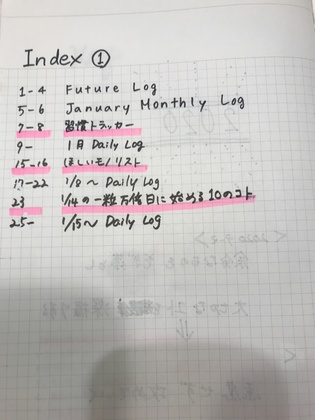 Index ①
1-4 Future Log
5-6 January Monthly Log
7-8 習慣トラッカー
9- 1月 Daily Log
15-16 ほしいモノリスト
17-22 1/8〜 Daily Log
23 1/14の一粒万倍日に始める10のコト
25- 1/15〜 Daily Log